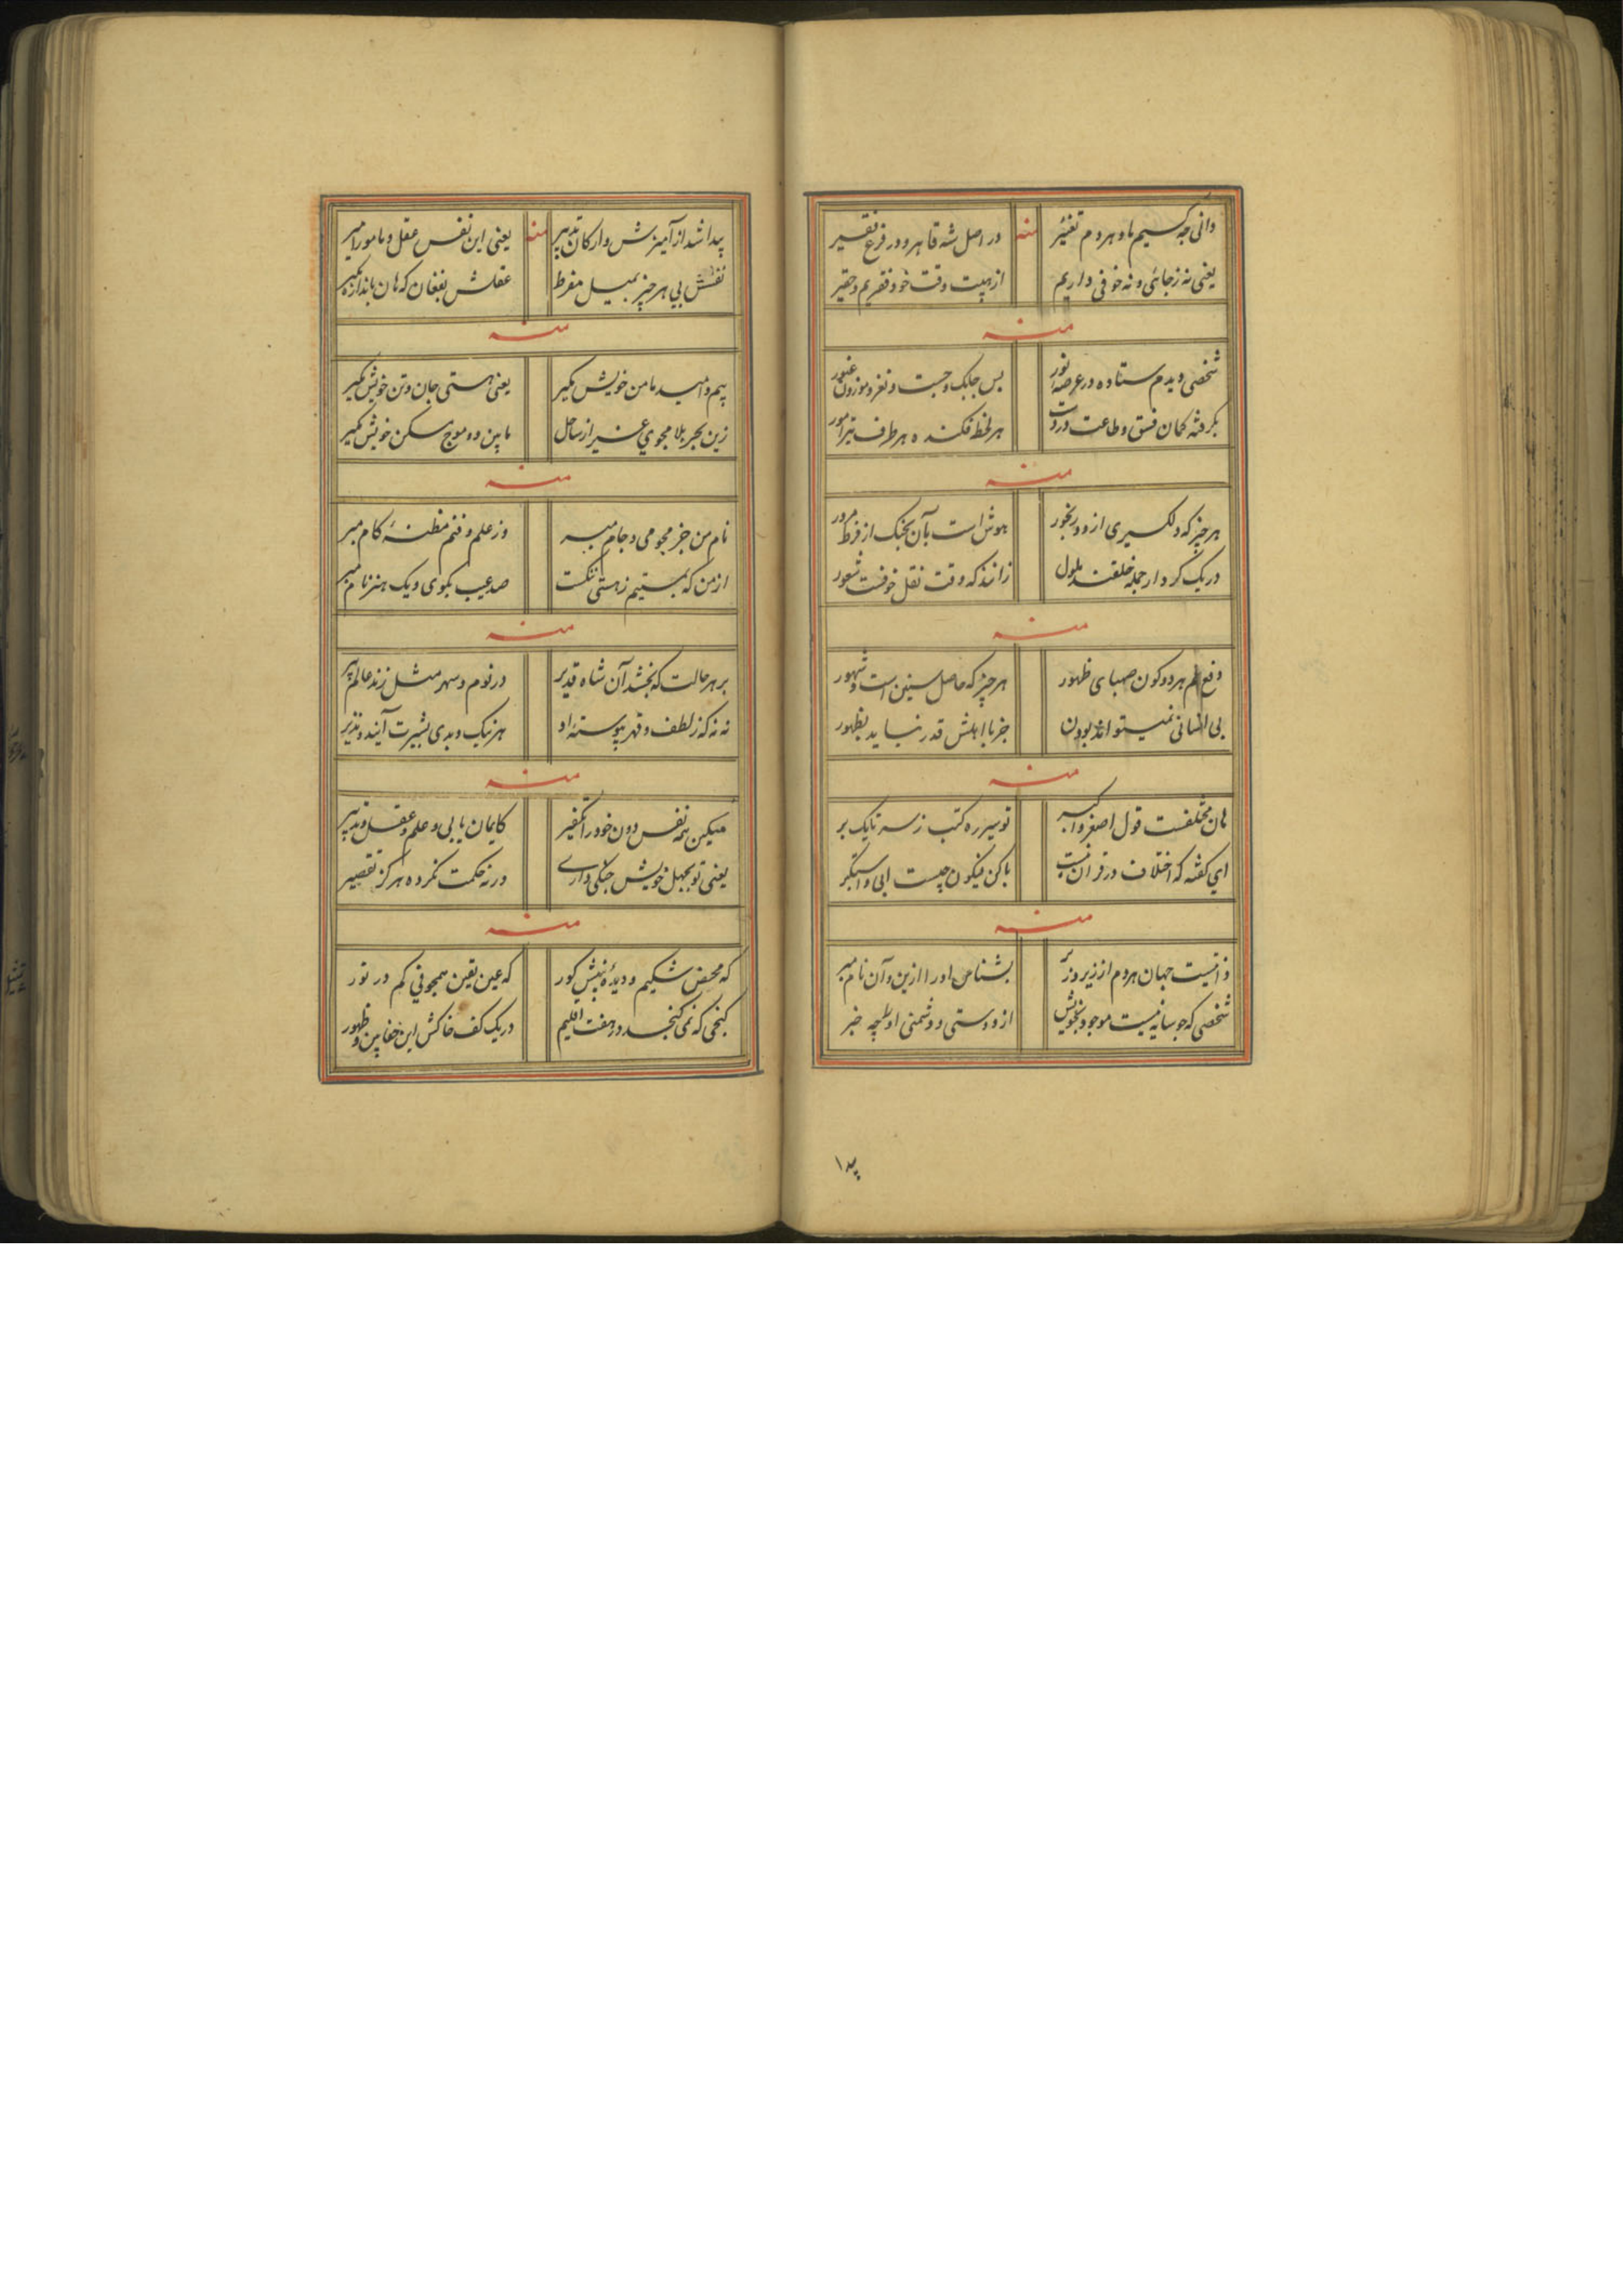 دانی چه کسیم ما و هر دم تغییر منه در اصل شه قاهر و در فرع فقیر
یعنی نه زجائی و نه خوفی داریم از هیبت وقت خود فقریم و حقیر
منه
شخصی دیدم ستاده در عرصه نور بس چابک و چست و نغز و موزون غیور
بگرفته کمان فسق و طاعت در دست هر لحظه فکنده هر طرف تیر امور
منه
هر چیز که دلگیری ازو و رنجور هوش است بآن بجنگ از فرط مرور
در یک کردار جمله خلقند ملول زانند که وقت نقل خوفت شعور
منه
دفع الم هر دو کون صهبای ظهور هر چیز که حاصل سنین است و شهور
بی انسانی نمیتواند بودن جز با اهلش قدر نیاید بظهور
منه
هان مختلفست قول اصغر و اکبر تو سیر ره کتب ز سر تا یک بر
ای گفته که اختلاف در قرآن نیست با کن فیکون چیست ابی و استکبر
منه
ذاتیست جهان هر دم از زیر و زبر بشناس او را ازین و آن نام مبر
شخصی که چو سایه نیست موجود بخویش از دوستی و دشمنی او را چه خبر
پیدا
پیدا شد از آمیزش و ارکان تدبیر منه یعنی این نفس عقل و مامور امیر
نفسش پی هر چیز بمیل مفرط عقلش بفغان که هان باندازه بگیر
منه
بیم و امید مامن خویش مگیر یعنی هستی جان و تن خویش مگیر
زین بحر بلا مجوی غیر از ساحل مابین دو موج مسکن خویش مگیر
منه
نام من جز مجو می و جام مبر وز علم و فنم مظنهٔ کام مبر
از من که بستیم ز هستی ننگست صد عیب بگوی و یک هنر نام مبر
منه
بر هر حالت که بخشد آن شاه قدیر در نوم و سهر مثل زند عالم پیر
نه نه که ز لطف و قهر پیوستهٔ او هر نیک و بدی بشیرت آیند و نذیر
منه
میکن همه نفس دون خود را تکفیر کایمان یابی و علم و عقل و تدبیر
یعنی تو بجهل خویش جنگی داری ورنه حکمت نکرده هرگز تقصیر
منه
که محض شکیم و دیدهٔ بینش کور که عین یقین همچو نی کم در نور
گنجی که نمی گنجد در هفت اقلیم در یک کف خاکش این خفا بین و ظهور